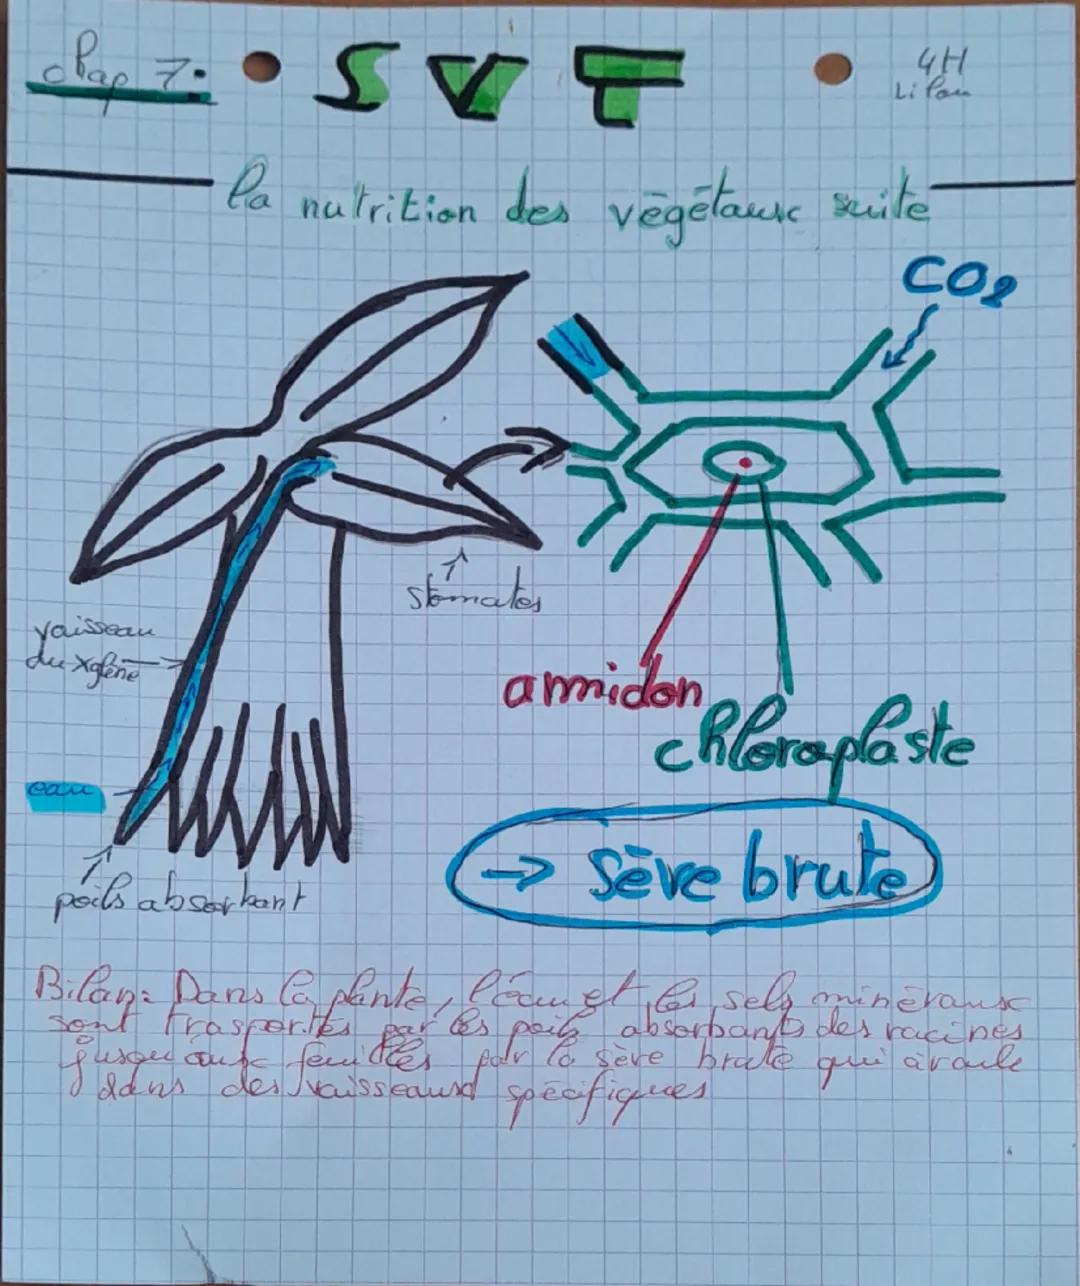 Chap 7:
SVT
4H
la nutrition des végétaux suite
CO2
stomates
vaisseau
du xylène
amidon
chloroplaste
eau
→ sève brute
poils absorbant
Bilan: Dans la plante, l'eau et les sels minéraux
sont trasportés par les poils absorbants des racines
jusqu'aux feuilles par la sève brute qui circule
dans des vaisseaux spécifiques